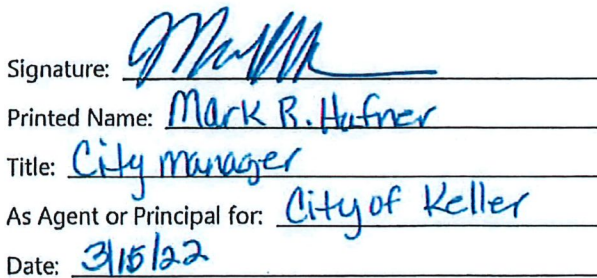 Signature:
Printed Name: Mark R. Hafner
Title: City manager
As Agent or Principal for: City of Keller
Date: 3/15/22